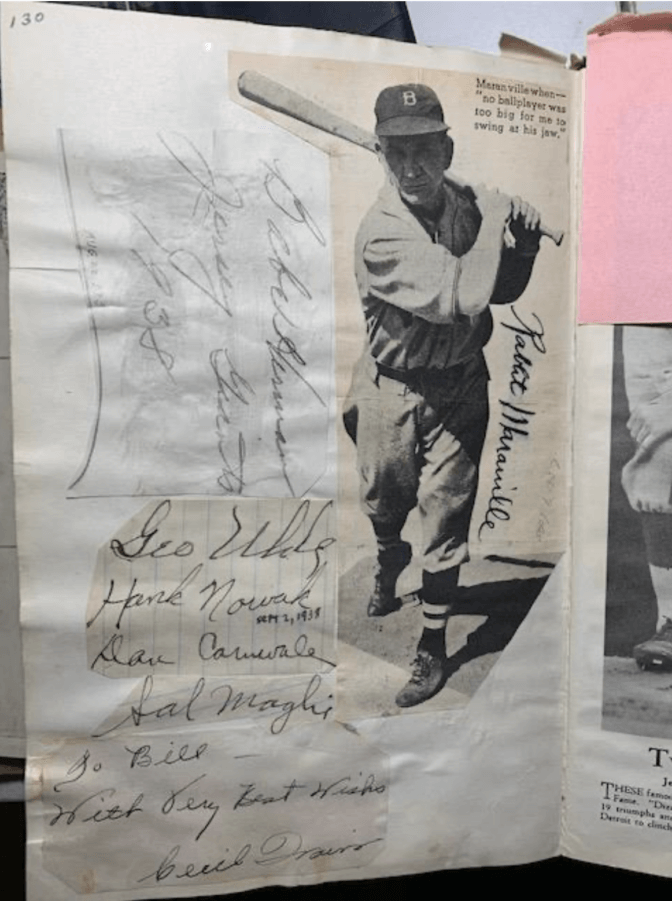 130
Maranville when—
"no ballplayer was
too big for me to
swing at his jaw."
B
Rabbit Maranville
Babe Herman
Jersey Giants
1938
AUG 22
Geo Uhle
Hank Nowak
SEPT 2, 1938
Dan Carnevale
Sal Maglie
To Bill –
With Very Best Wishes
Cecil Travis
T
THESE famou
Fame. "Diz
19 triumphs an
Detroit to clinch